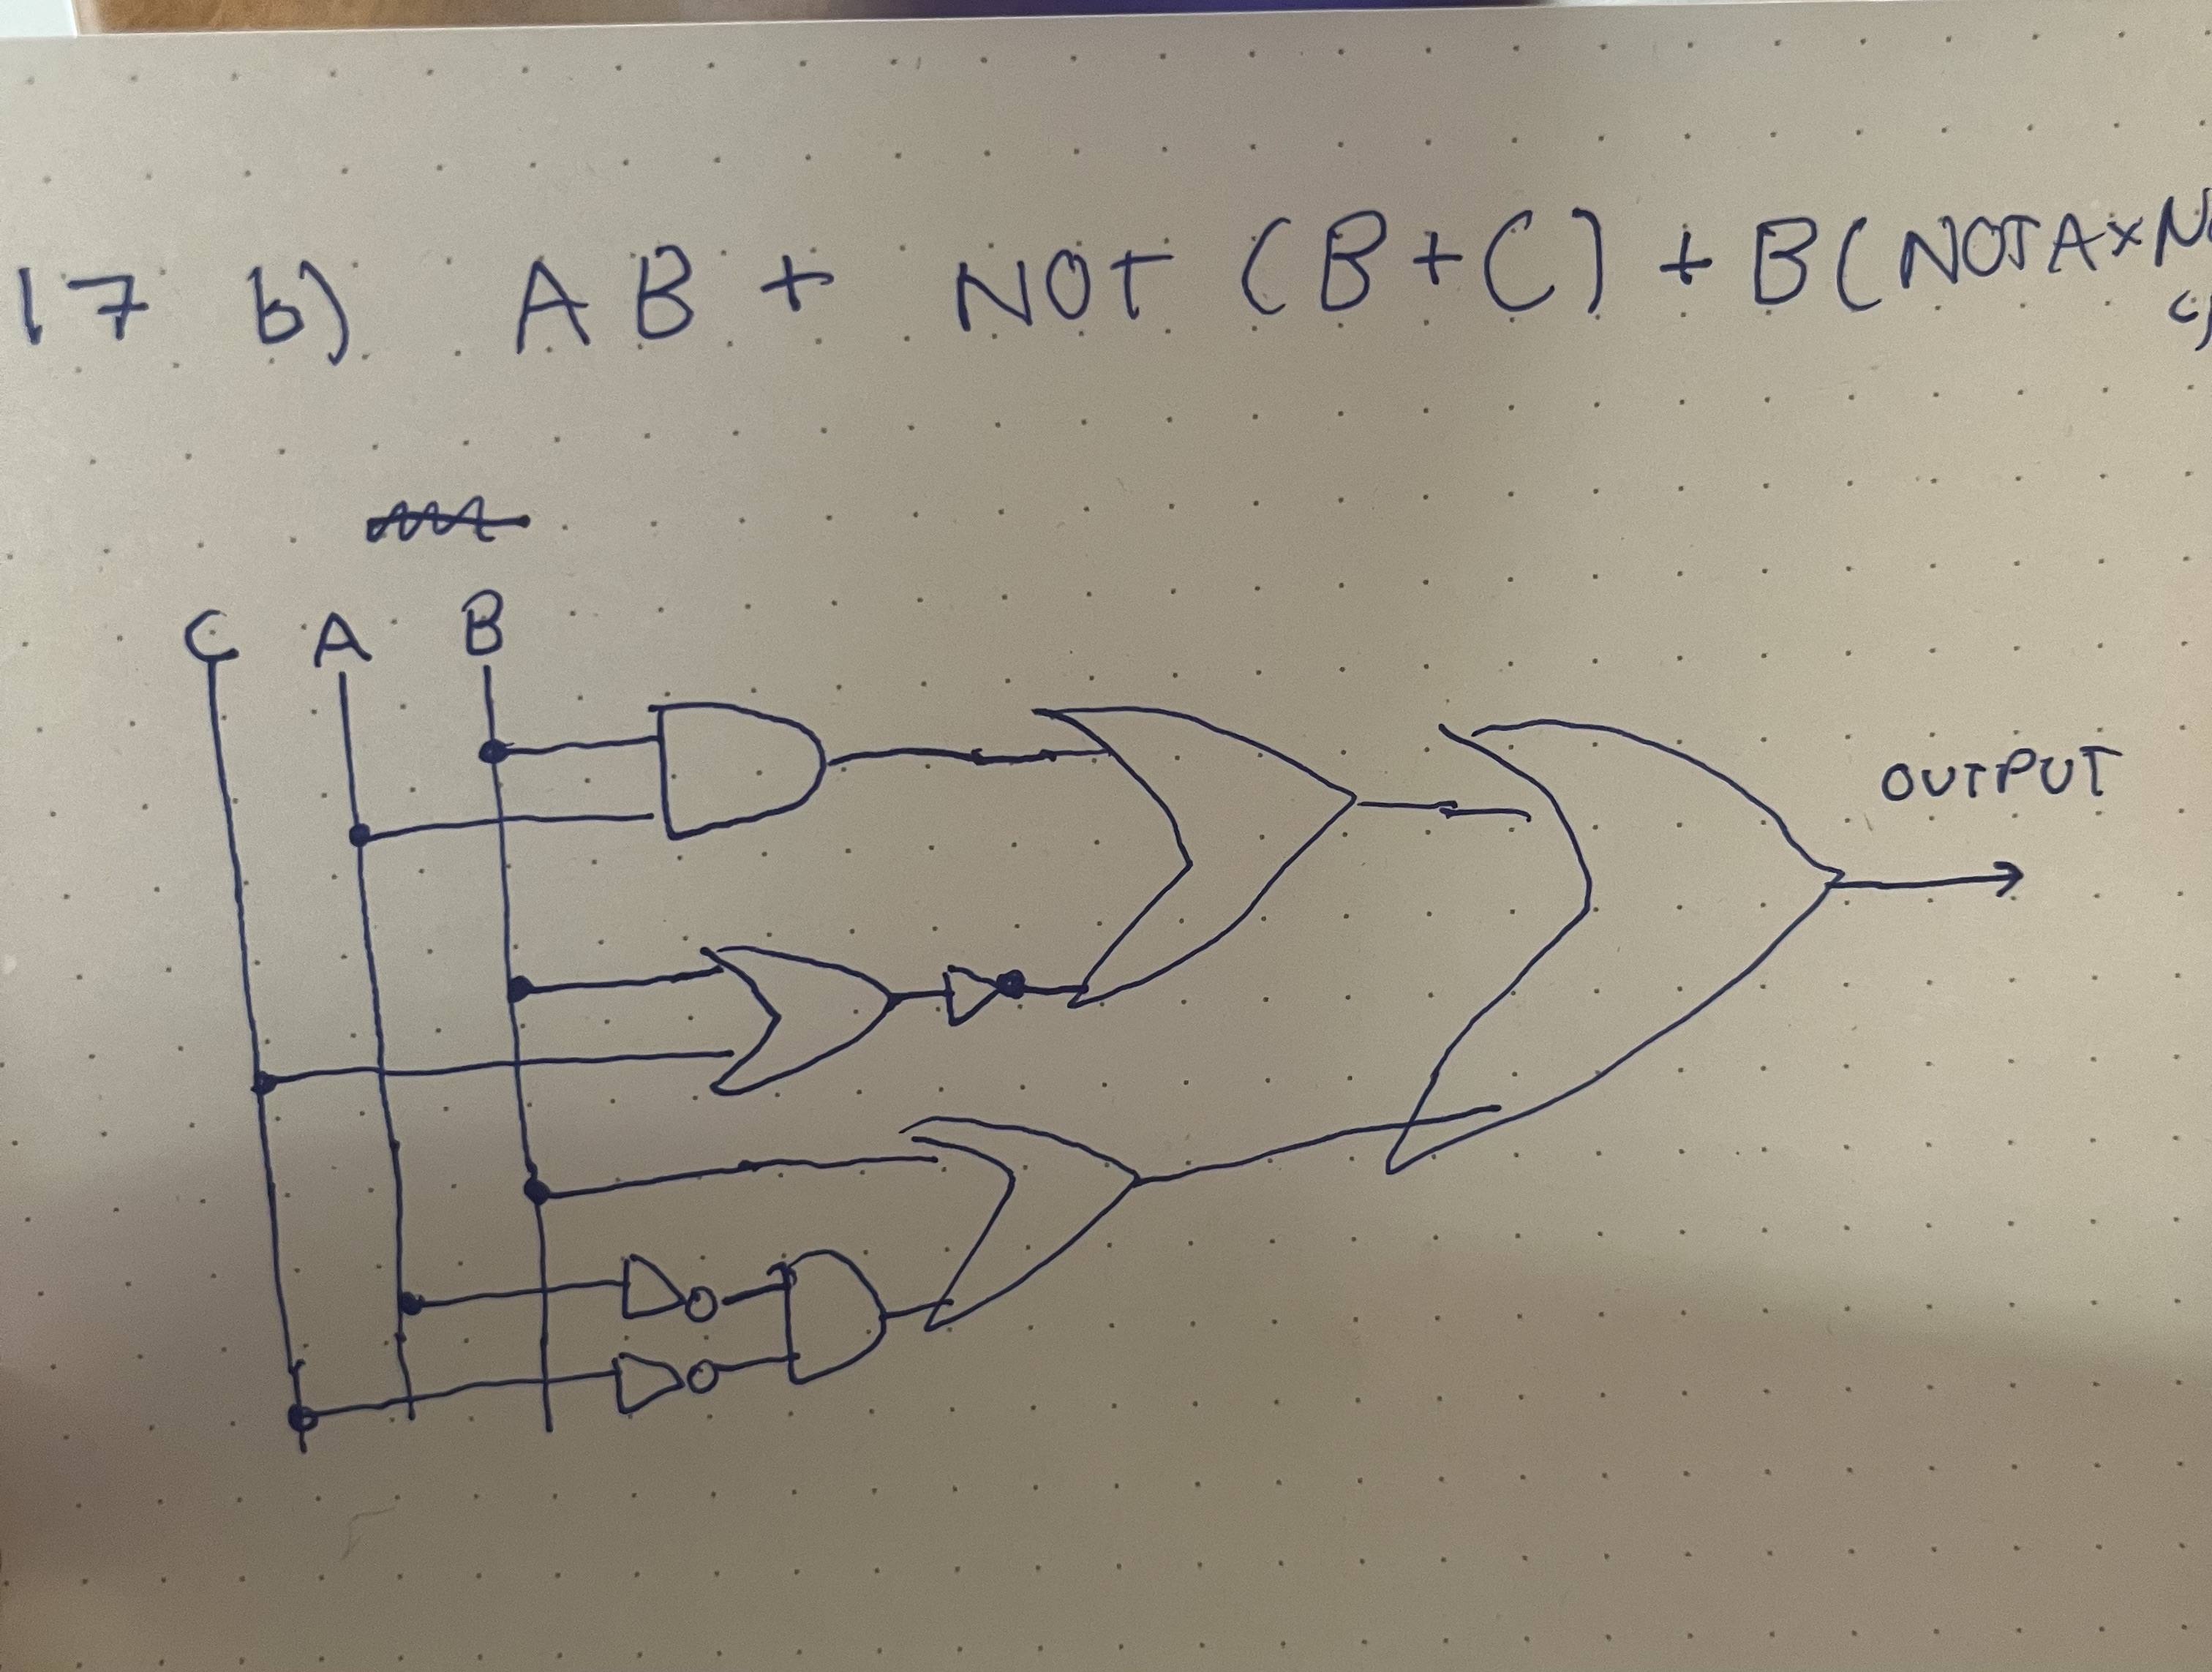 17 b) AB + NOT (B+C) + B(NOTA×NO
C)
C A B
OUTPUT